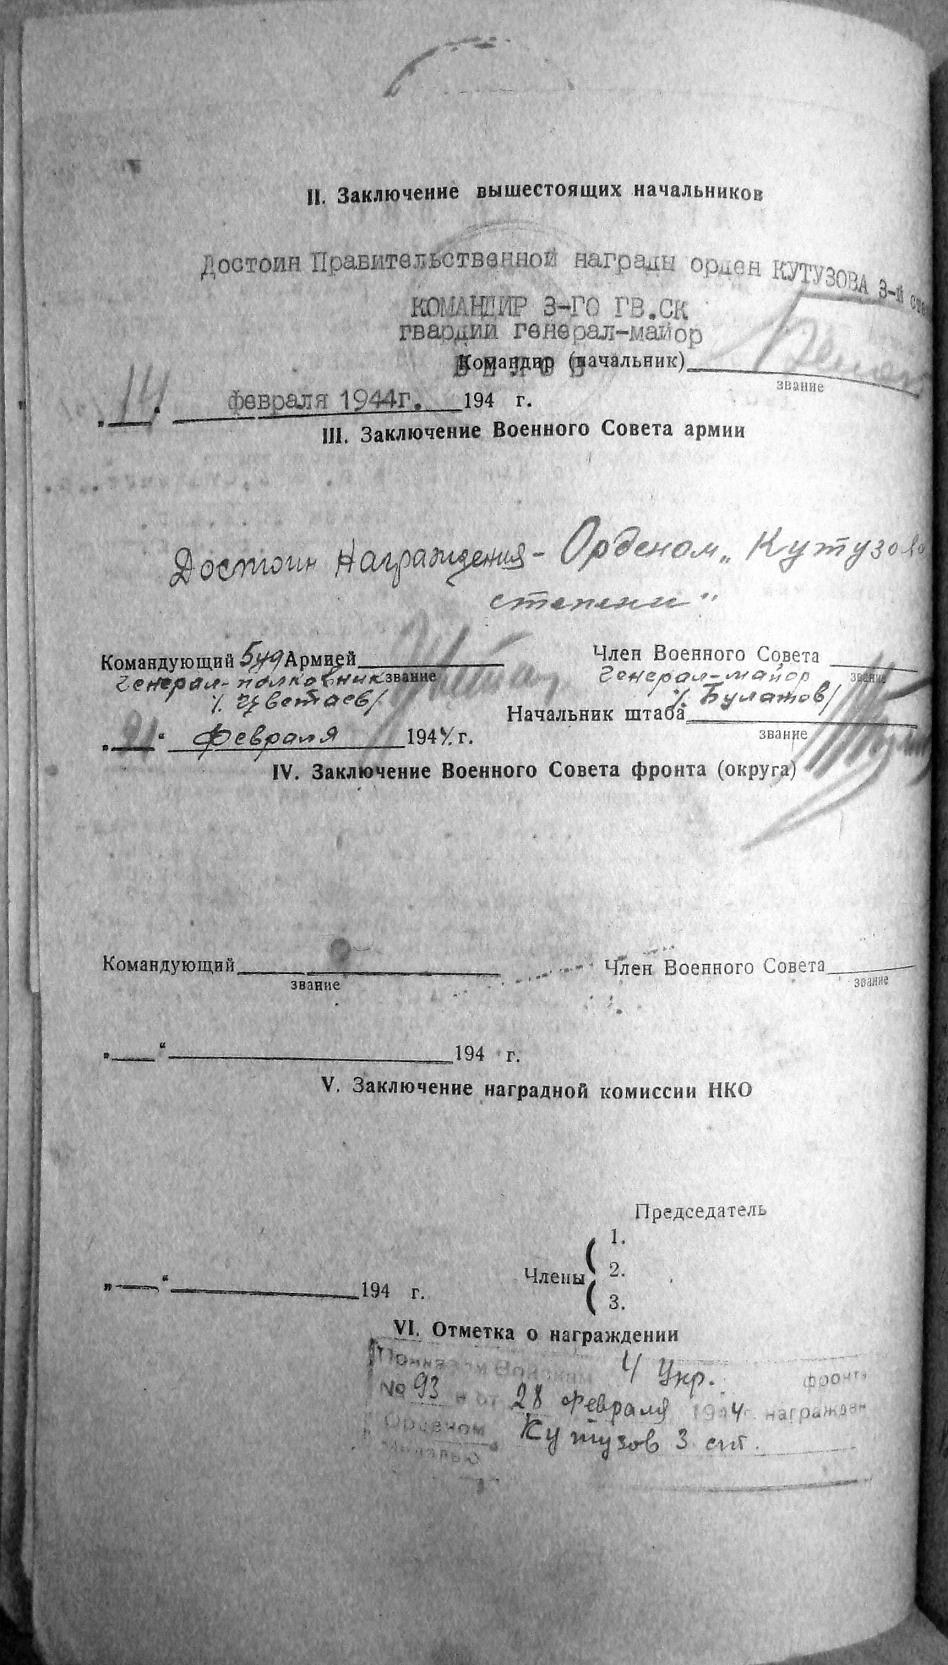 II. Заключение вышестоящих начальников
Достоин Правительственной награды орден КУТУЗОВА 3-й
КОМАНДИР 3-ГО ГВ.СК
гвардии генерал-майор
Командир (начальник)
звание
„14" февраля 1944г. 194 г.
III. Заключение Военного Совета армии
Достоин Награждения - Орденом „Кутузова
степени"
Командующий 5 уд Армией
Член Военного Совета
Генерал-полковник звание
Генерал-майор звание
/. Цветаев/
/. Булатов/
Начальник штаба
звание
„21" февраля 1944 г.
IV. Заключение Военного Совета фронта (округа)
Командующий
Член Военного Совета
звание
звание
„ “ 194 г.
V. Заключение наградной комиссии НКО
Председатель
1.
Члены 2.
3.
„ “ 194 г.
VI. Отметка о награждении
Приказом Войскам 4 Укр. фронта
№ 93 от 28 февраля 1944г. награжден
Орденом Кутузов 3 ст.
Медалью